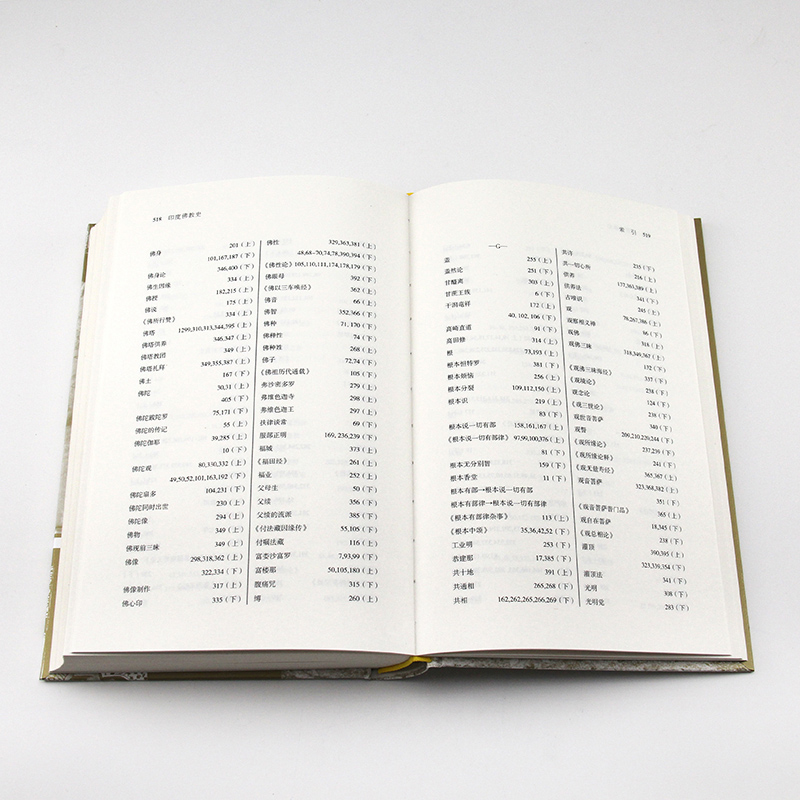 518 印度佛教史
佛身 201（上）
101,167,187（下）
346,400（下）
佛身论 334（上）
佛生因缘 182,215（上）
佛授 175（上）
佛说 334（上）
《佛所行赞》 1299,310,313,344,395（上）
佛塔 346,347（上）
佛塔供养 349（上）
佛塔教团 349,355,387（上）
佛塔礼拜 167（下）
佛土 30,31（上）
佛陀 405（下）
75,171（下）
佛陀跋陀罗 55（上）
佛陀的传记 39,285（上）
佛陀伽耶 10（下）
80,330,332（上）
佛陀观 49,50,52,101,163,192（下）
104,231（下）
佛陀扇多 230（上）
佛陀同时出世 294（上）
佛陀像 349（上）
佛物 349（上）
佛现前三昧 298,318,362（上）
佛像 322,334（下）
317（上）
佛像制作 335（下）
佛心印
佛性 329,363,381（上）
48,68-70,74,78,390,394（下）
《佛性论》 105,110,111,174,178,179（下）
佛眼母 392（下）
《佛以三车唤经》 362（上）
佛音 66（上）
佛智 352,366（下）
佛种 71,170（下）
佛种性 74（下）
佛种姓 268（上）
佛子 72,74（下）
《佛祖历代通载》 105（上）
弗沙密多罗 279（上）
弗维色迦寺 298（上）
弗维色迦王 397（上）
扶律谈常 69（下）
服部正明 169,236,239（下）
福城 373（上）
《福田经》 261（上）
福业 252（上）
父母生 50（下）
父续 356（下）
父续的流派 385（下）
《付法藏因缘传》 55,105（下）
付嘱法藏 116（上）
富娄沙富罗 7,93,99（下）
富楼那 50,105,180（上）
腹痛咒 315（下）
博 260（上）
索 引 519
—G—
盖 255（上）
盖然论 251（下）
甘蹉离 303（上）
甘蔗王统 6（下）
干潟龙祥 172（上）
40,102,106（下）
高崎直道 91（下）
高田修 314（上）
根 73,193（上）
根本怛特罗 381（下）
根本烦恼 256（上）
根本分裂 109,112,150（上）
根本识 219（上）
83（下）
根本说一切有部 158,161,167（上）
《根本说一切有部律》 97,99,100,376（上）
81（下）
根本无分别智 159（下）
根本香堂 11（下）
根本有部→根本说一切有部
根本有部律→根本说一切有部律
《根本有部律杂事》 113（上）
《根本中颂》 35,36,42,52（下）
工业明 253（下）
恭建那 17,385（下）
共十地 391（上）
共通相 265,268（下）
共相 162,262,265,266,269（下）
共许
共一切心所 235（下）
供养 216（上）
供养法 177,383,389（上）
古唯识 341（下）
观 245（上）
观察相义禅 76,267,386（上）
观佛 66（下）
观佛三昧 318,349,367（上）
《观佛三昧海经》 132（下）
《观境论》 337（上）
观念论 238（下）
《观三世论》 124（下）
观世音菩萨 238（下）
观智 340（下）
《观所缘论》 209,210,229,244（下）
《观所缘论释》 237,239（下）
《观无量寿经》 241（下）
观音菩萨 365,367（上）
323,368,382（上）
351（下）
《观音菩萨普门品》 365（上）
观自在菩萨 18,345（下）
《观总相论》 238（下）
灌顶 390,395（上）
323,339,354（下）
灌顶法 341（下）
光明 308（下）
光明党 283（下）